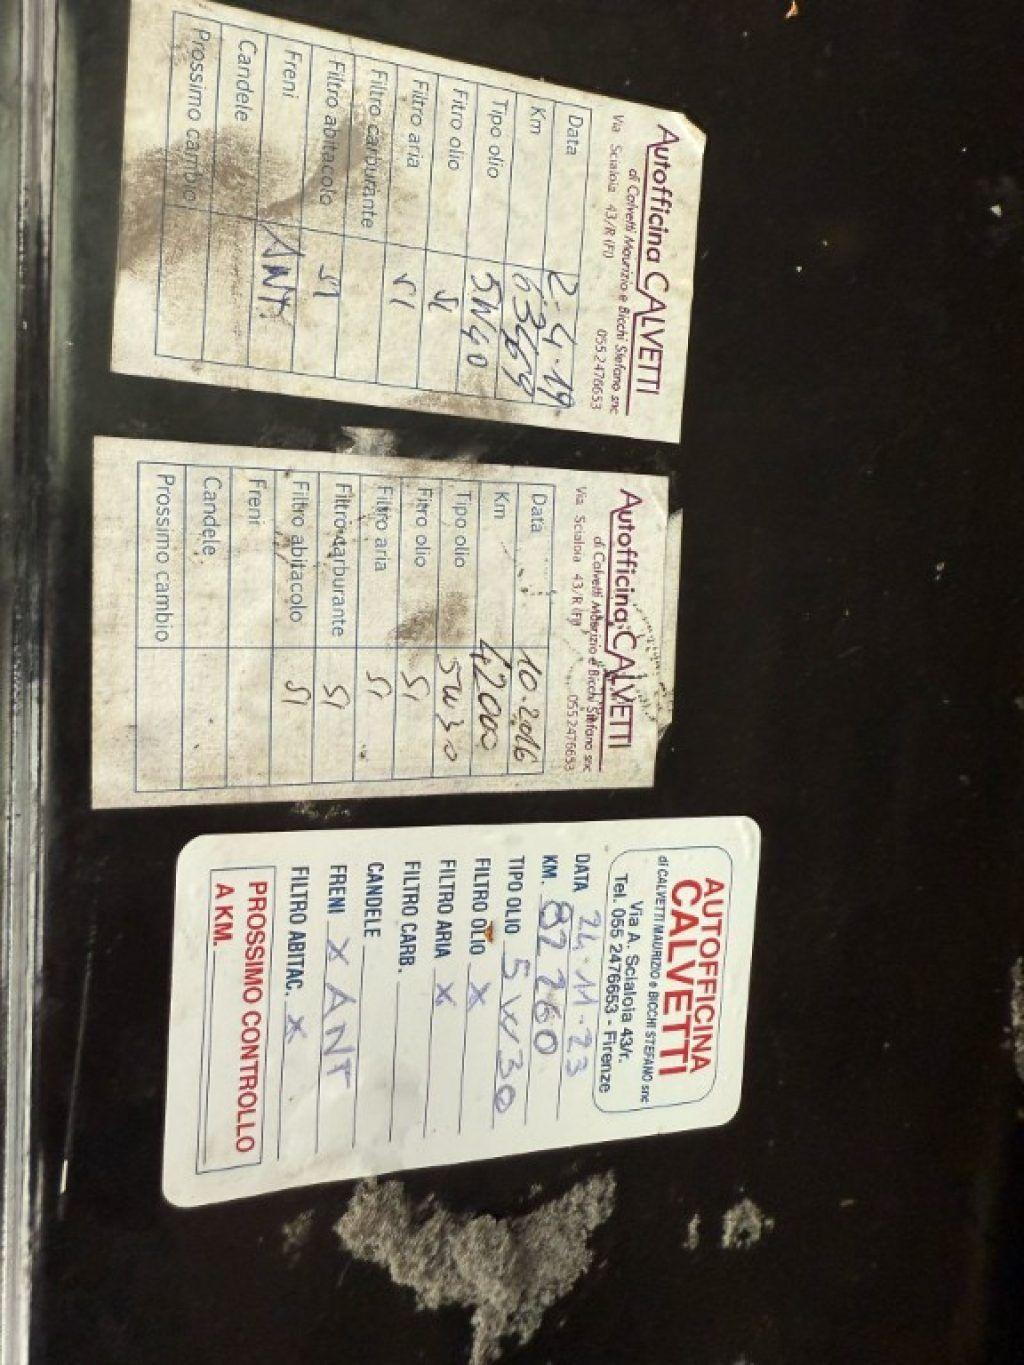 Autofficina CALVETTI
di Calvetti Maurizio e Bicchi Stefano snc
Via Scialoia 43/R (FI) 055 2476653
Data 2.4.19
Km 63469
Tipo olio 5W40
Fitro olio SI
Filtro aria SI
Filtro carburante
Filtro abitacolo SI
Freni ANT.
Candele
Prossimo cambio
Autofficina CALVETTI
di Calvetti Maurizio e Bicchi Stefano snc
Via Scialoia 43/R (FI) 055 2476653
Data 10.2016
Km 42000
Tipo olio 5W30
Fitro olio SI
Filtro aria SI
Filtro carburante SI
Filtro abitacolo SI
Freni
Candele
Prossimo cambio
AUTOFFICINA
CALVETTI
di CALVETTI MAURIZIO e BICCHI STEFANO snc
Via A. Scialoia 43/r.
Tel. 055 2476653 - Firenze
DATA 24.11.23
KM. 82260
TIPO OLIO 5W30
FILTRO OLIO X
FILTRO ARIA X
FILTRO CARB.
CANDELE
FRENI X ANT
FILTRO ABITAC. X
PROSSIMO CONTROLLO
A KM.